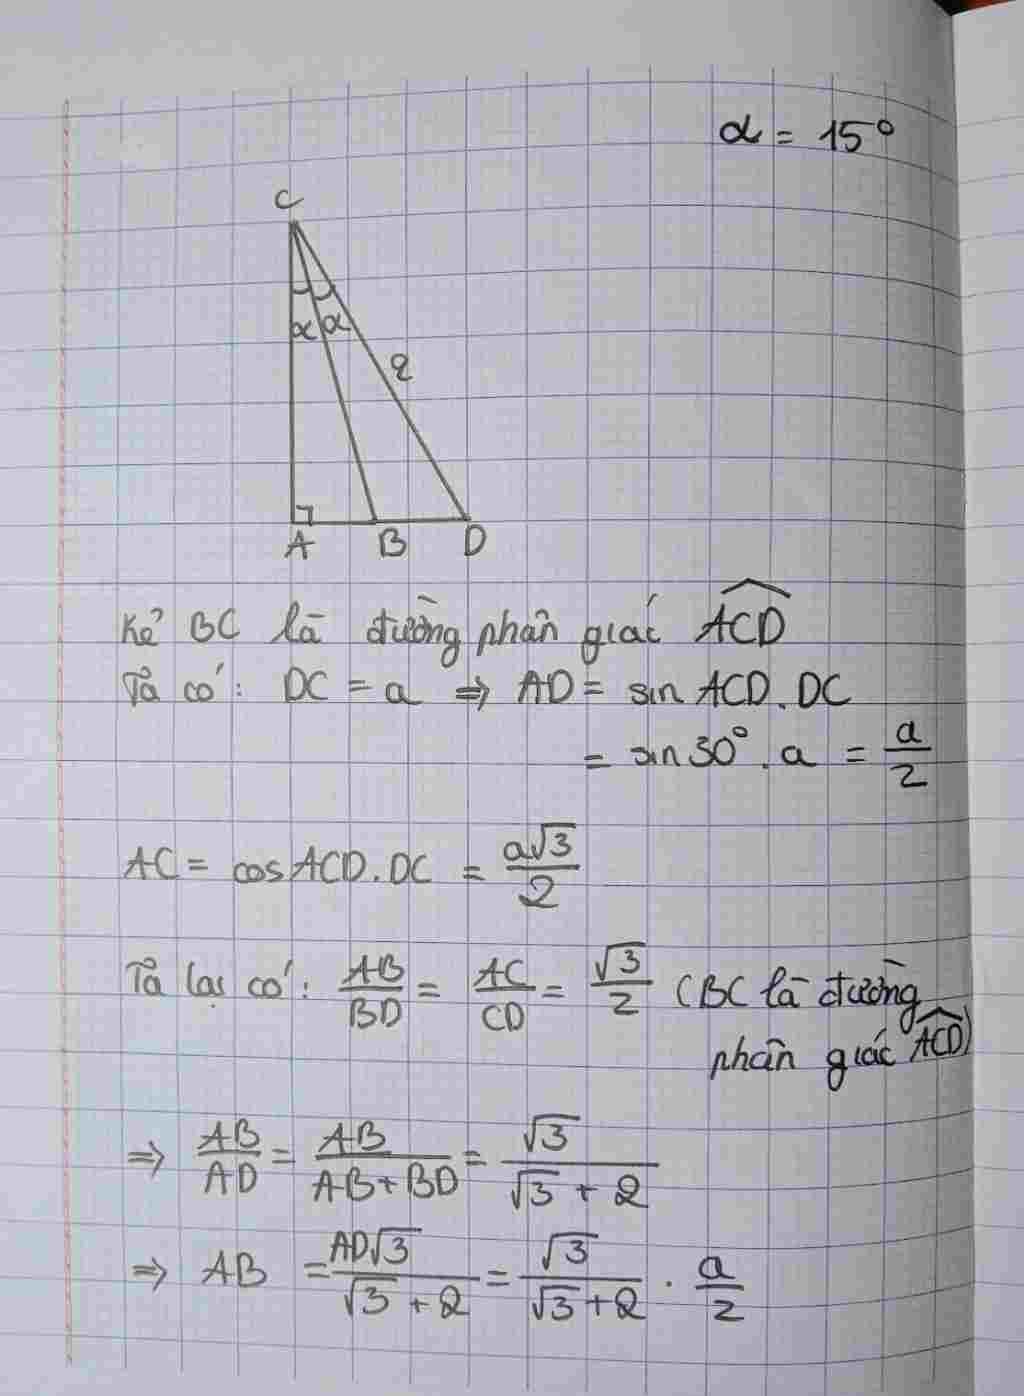 α = 15°
C
α α
a
A B D
Kẻ BC là đường phân giác \widehat{ACD}
Ta có: DC = a ⇒ AD = sin ACD . DC
= sin 30° . a = \frac{a}{2}
AC = cos ACD . DC = \frac{a√3}{2}
Ta lại có: \frac{AB}{BD} = \frac{AC}{CD} = \frac{√3}{2} (BC là đường
phân giác \widehat{ACD})
⇒ \frac{AB}{AD} = \frac{AB}{AB + BD} = \frac{√3}{√3 + 2}
⇒ AB = \frac{AD√3}{√3 + 2} = \frac{√3}{√3 + 2} . \frac{a}{2}